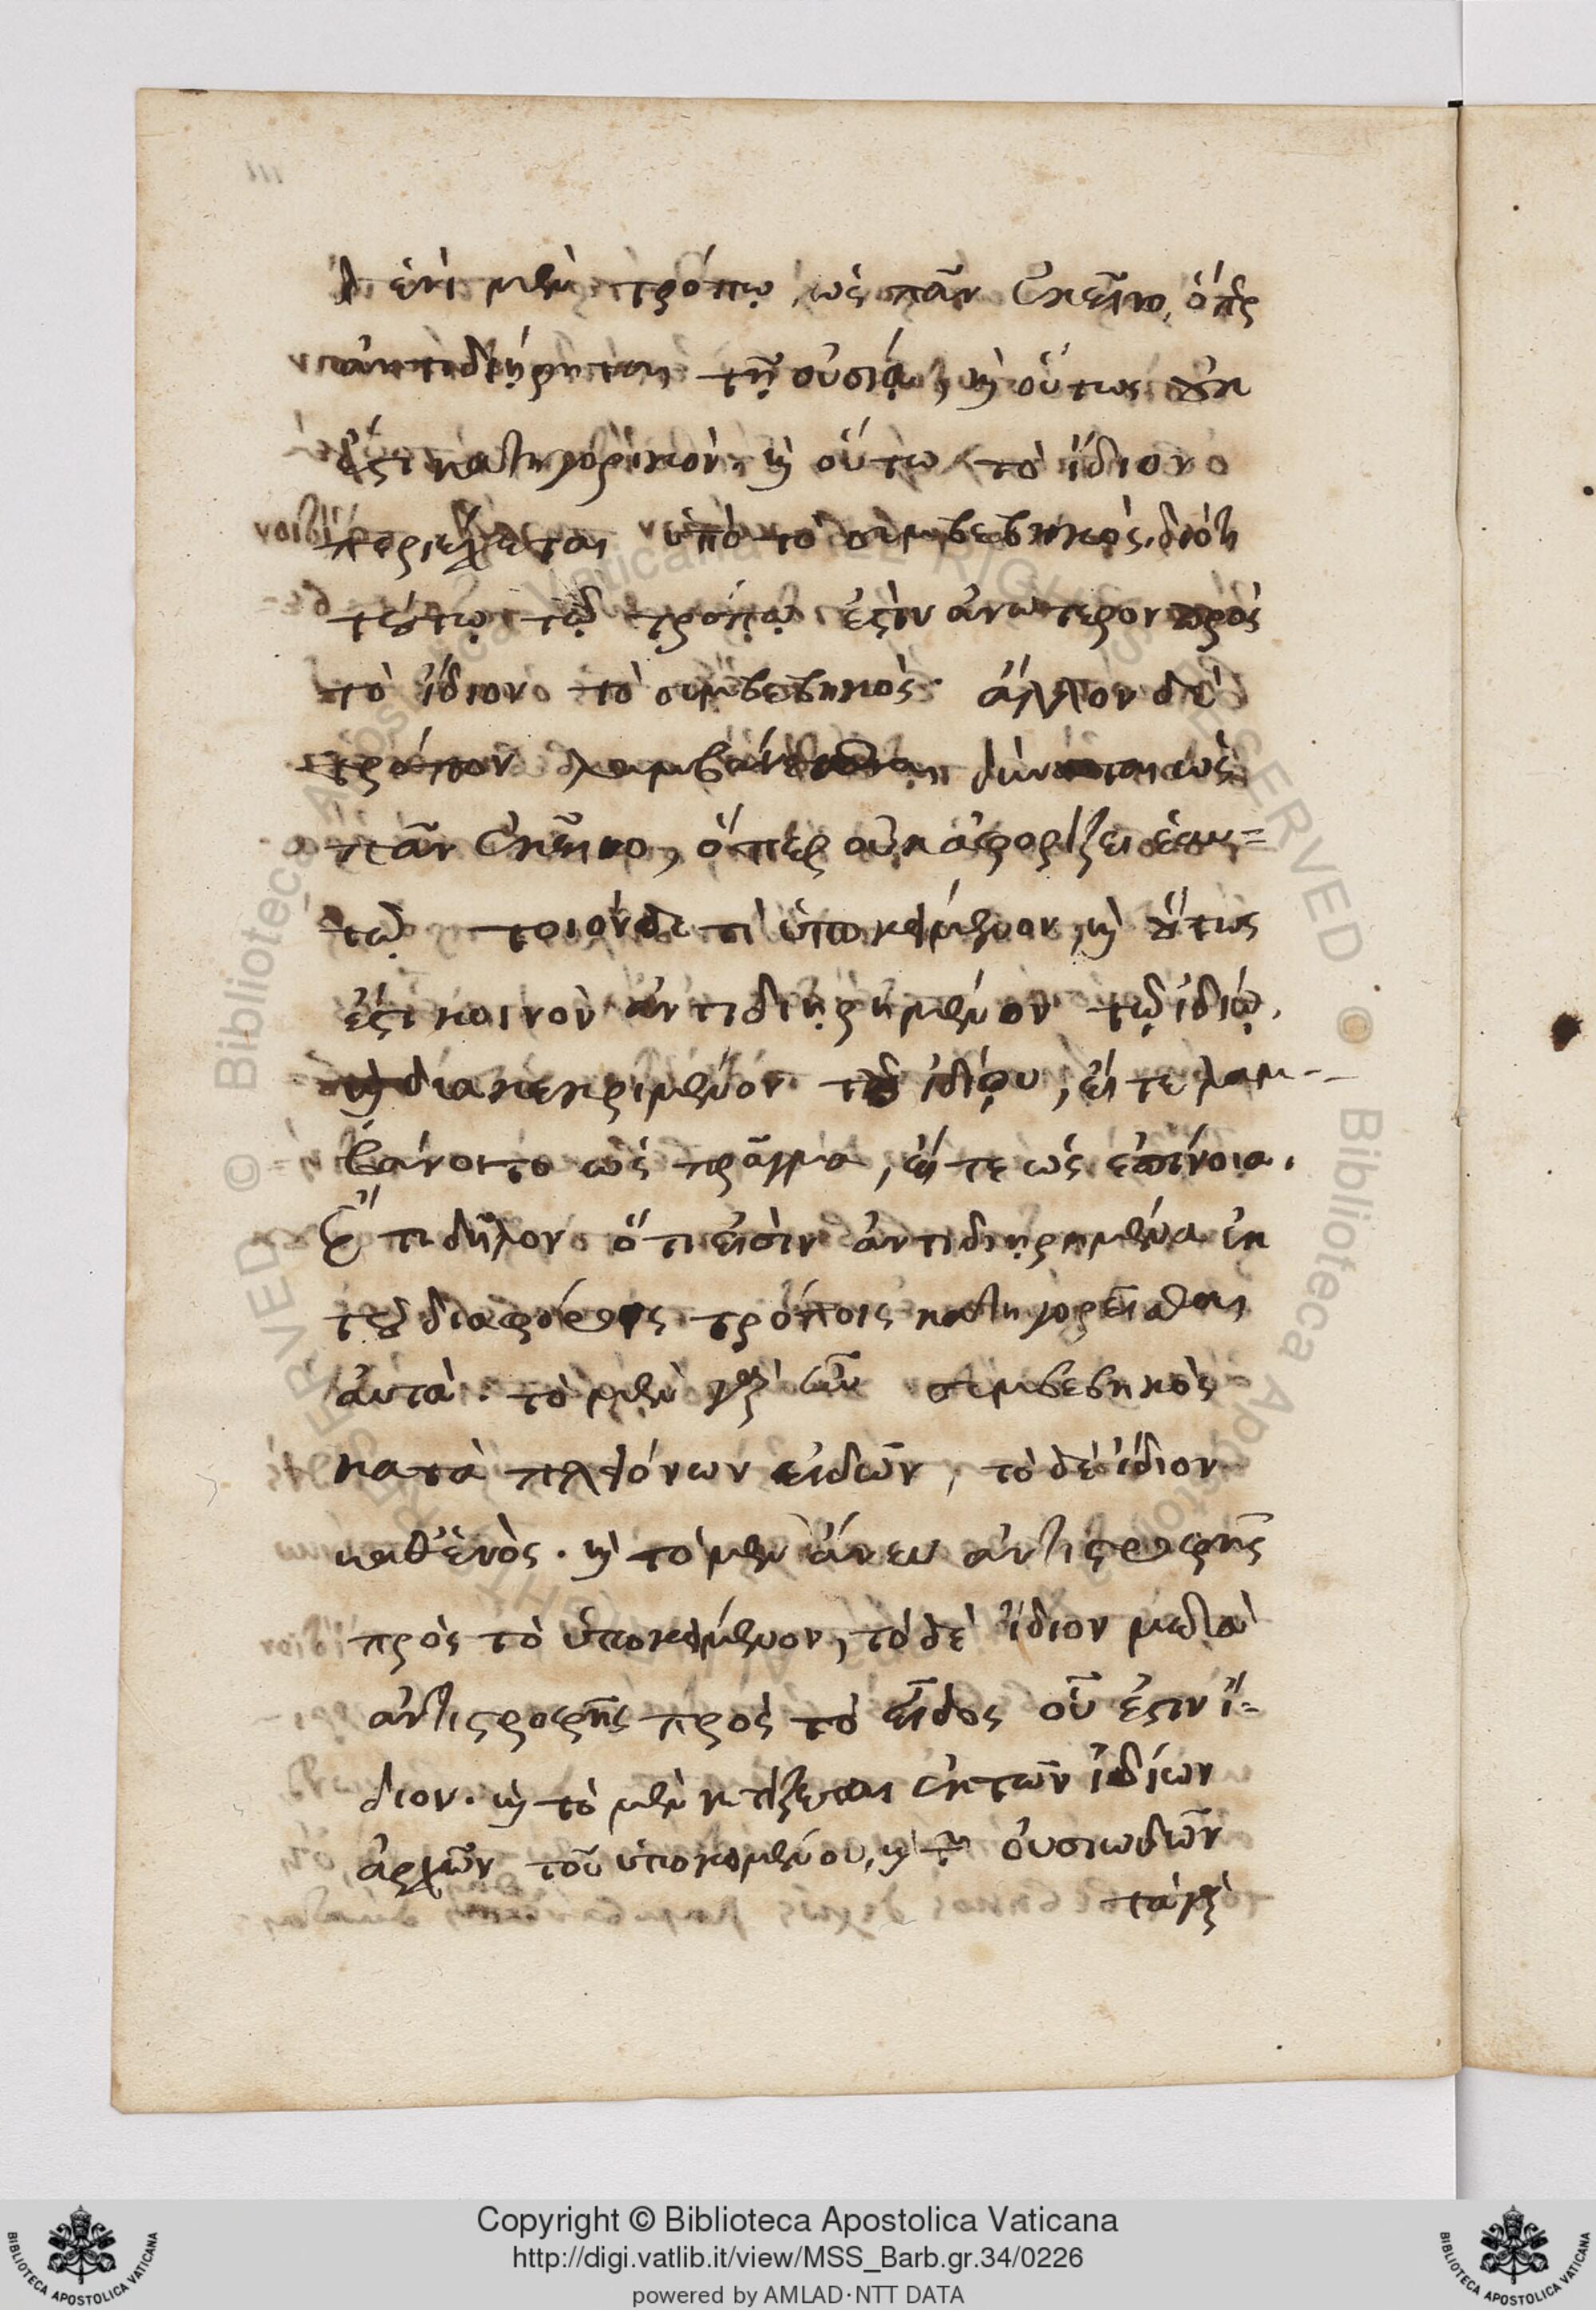 ἑνὶ μὲν τρόπῳ, ὡς πᾶν ἐκεῖνο, ὅπερ
ἀντιδιῄρηται τῇ οὐσίᾳ, καὶ οὕτως οὐκ
ἔστι κατηγορικὸν, καὶ οὕτω τὸ ἴδιον
περιέχεται ὑπὸ τὸ συμβεβηκὸς, διότι
τούτῳ τῷ τρόπῳ ἐστὶν ἀνώτερον πρὸς
τὸ ἴδιον τὸ συμβεβηκός· ἄλλον δὲ
τρόπον δύναται ὡς
πᾶν ἐκεῖνο, ὅπερ οὐκ ἀφορίζει ἑαυ=
τῷ τοιόνδε τι ὑποκείμενον, καὶ οὕτως
ἐστὶ κοινὸν ἀντιδιῃρημένον τῷ ἰδίῳ,
καὶ διακεκριμένον τοῦ ἰδίου, εἴτε λαμ-
βάνοιτο ὡς πρᾶγμα, εἴτε ὡς ἐπίνοια.
Ἔτι δῆλον ὅτι εἰσὶν ἀντιδιῃρημένα ἐκ
τοῦ διαφόροις τρόποις κατηγορεῖσθαι
αὐτά. τὸ μὲν γὰρ οὖν συμβεβηκὸς
κατὰ πλειόνων εἰδῶν, τὸ δὲ ἴδιον
καθ' ἑνὸς. καὶ τὸ μὲν ἄνευ ἀντιστροφῆς
πρὸς τὸ ὑποκείμενον, τὸ δὲ ἴδιον μετὰ
ἀντιστροφῆς πρὸς τὸ εἶδος οὗ ἐστιν ἴ=
διον. καὶ τὸ μὲν κτίζεται ἐκ τῶν ἰδίων
ἀρχῶν τοῦ ὑποκειμένου, καὶ τῶν οὐσιωδῶν
τὰ γὰρ
© Biblioteca Apostolica Vaticana ALL RIGHTS RESERVED
Copyright © Biblioteca Apostolica Vaticana
http://digi.vatlib.it/view/MSS_Barb.gr.34/0226
powered by AMLAD·NTT DATA
BIBLIOTECA APOSTOLICA VATICANA
BIBLIOTECA APOSTOLICA VATICANA